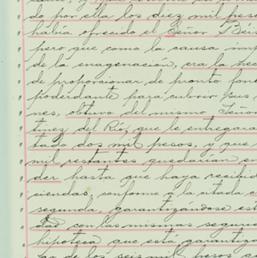 do por ella los diez mil pesos
había ofrecido el Señor
pero que como la causa
de la enagenación, era la
de proporcionar de pronto
poderdante para cubrir sus
nes, obtuvo del mismo Señor
tinez del Río, que le entregara
tado dos mil pesos, y que
mil restantes quedarían en
der hasta que haya
ciendas, conforme a la citada
segunda, garantizándose
dad con las mismas
hipoteca que está
ga de los seis mil pesos